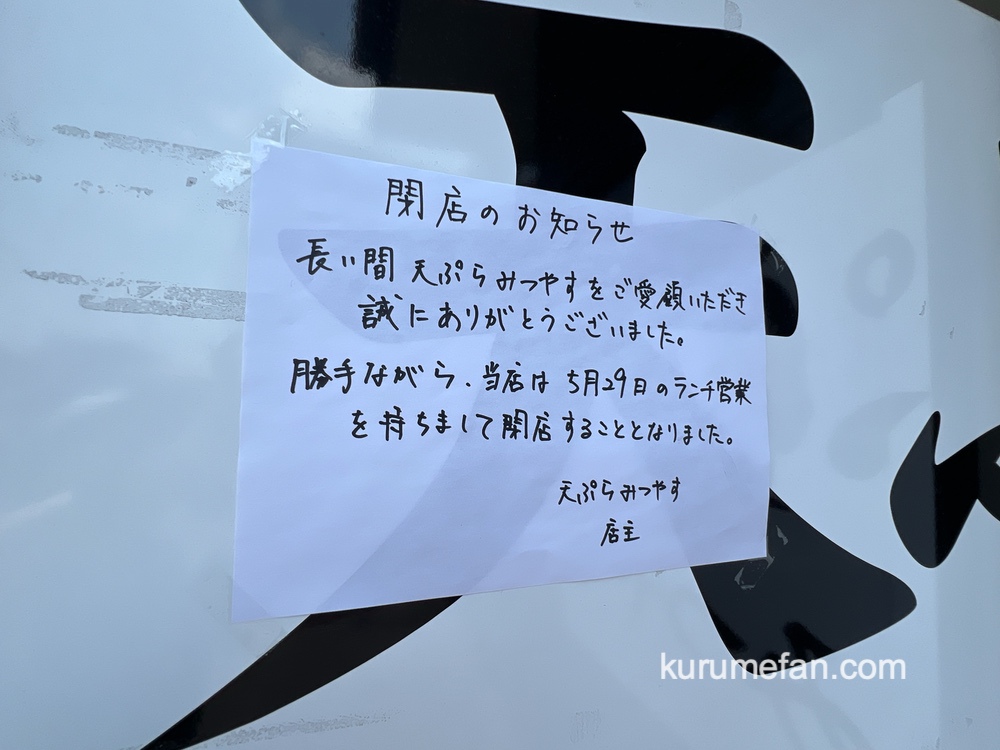 閉店のお知らせ
長い間 天ぷらみつやすをご愛顧いただき
誠にありがとうございました。
勝手ながら、当店は 5月29日のランチ営業
を持ちまして閉店することとなりました。
天ぷらみつやす
店主
天
kurumefan.com